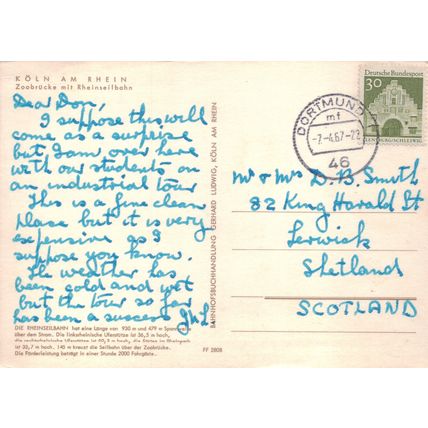 KÖLN AM RHEIN
Zoobrücke mit Rheinseilbahn
Dear Don,
I suppose this will
come as a surprise
but I am over here
with our students on
an industrial tour
This is a fine clean
place but it is very
expensive as I
suppose you know.
The weather has
been cold and wet
but the tour so far
has been a success
DIE RHEINSEILBAHN hat eine Länge von 930 m und 479 m Spannweite
über dem Strom. Die linksrheinische Uferstütze ist 36,5 m hoch,
die rechtsrheinische Uferstütze ist 50,3 m hoch, die Stütze im Rheinpark
ist 33,7 m hoch. 145 m kreuzt die Seilbahn über der Zoobrücke.
Die Förderleistung beträgt in einer Stunde 2000 Fahrgäste.
FF 2808
BAHNHOFSBUCHHANDLUNG GERHARD LUDWIG, KÖLN AM RHEIN
DORTMUND
mf
46
Deutsche Bundespost
30
Mr & Mrs D. B. Smith
82 King Harald St
Lerwick
Shetlands
SCOTLAND